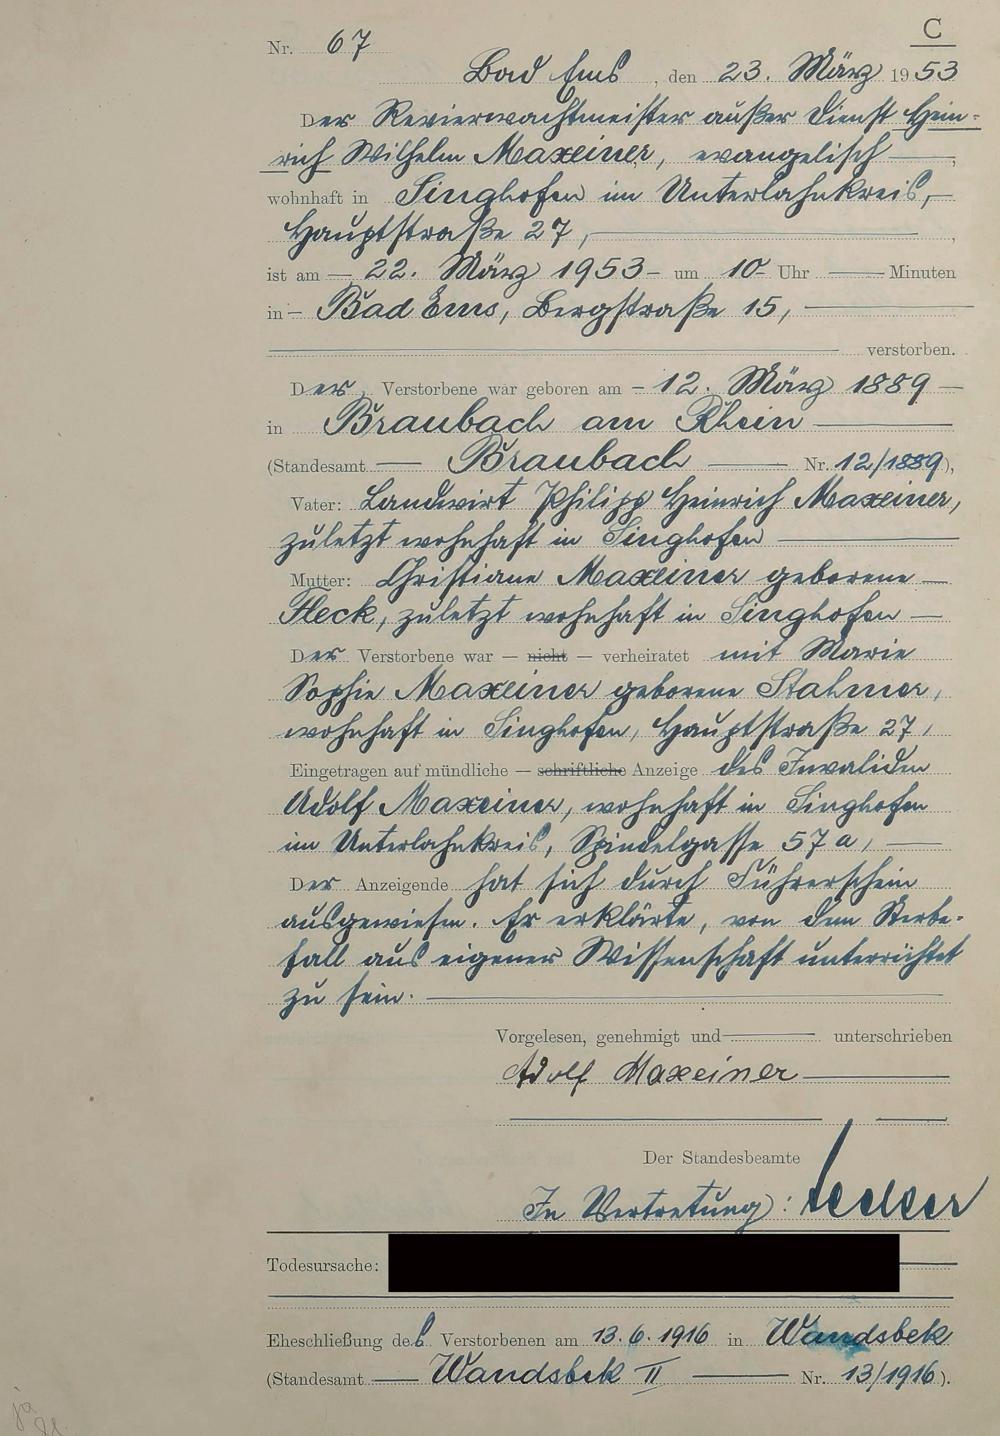 C
Nr. 67
Bad Ems, den 23. März 1953
Der Revierwachtmeister außer Dienst Hein-
rich Wilhelm Maxeiner, evangelisch,
wohnhaft in Singhofen im Unterlahnkreis,
Hauptstraße 27,
ist am 22. März 1953 um 10 Uhr Minuten
in Bad Ems, Bergstraße 15,
verstorben.
Der Verstorbene war geboren am 12. März 1889
in Braubach am Rhein
(Standesamt Braubach Nr. 12/1889),
Vater: Landwirt Philipp Heinrich Maxeiner,
zuletzt wohnhaft in Singhofen
Mutter: Christiane Maxeiner geborene
Fleck, zuletzt wohnhaft in Singhofen
Der Verstorbene war — nicht — verheiratet mit Marie
Sophie Maxeiner geborene Stahmer,
wohnhaft in Singhofen, Hauptstraße 27,
Eingetragen auf mündliche — schriftliche Anzeige des Invaliden
Adolf Maxeiner, wohnhaft in Singhofen
im Unterlahnkreis, Spindelgasse 57a,
Der Anzeigende hat sich durch Führerschein
ausgewiesen. Er erklärte, von dem Sterbe-
fall aus eigener Wissenschaft unterrichtet
zu sein.
Vorgelesen, genehmigt und unterschrieben
Adolf Maxeiner
Der Standesbeamte
In Vertretung:
Todesursache:
Eheschließung des Verstorbenen am 13.6.1916 in Wandsbek
(Standesamt Wandsbek II Nr. 13/1916).